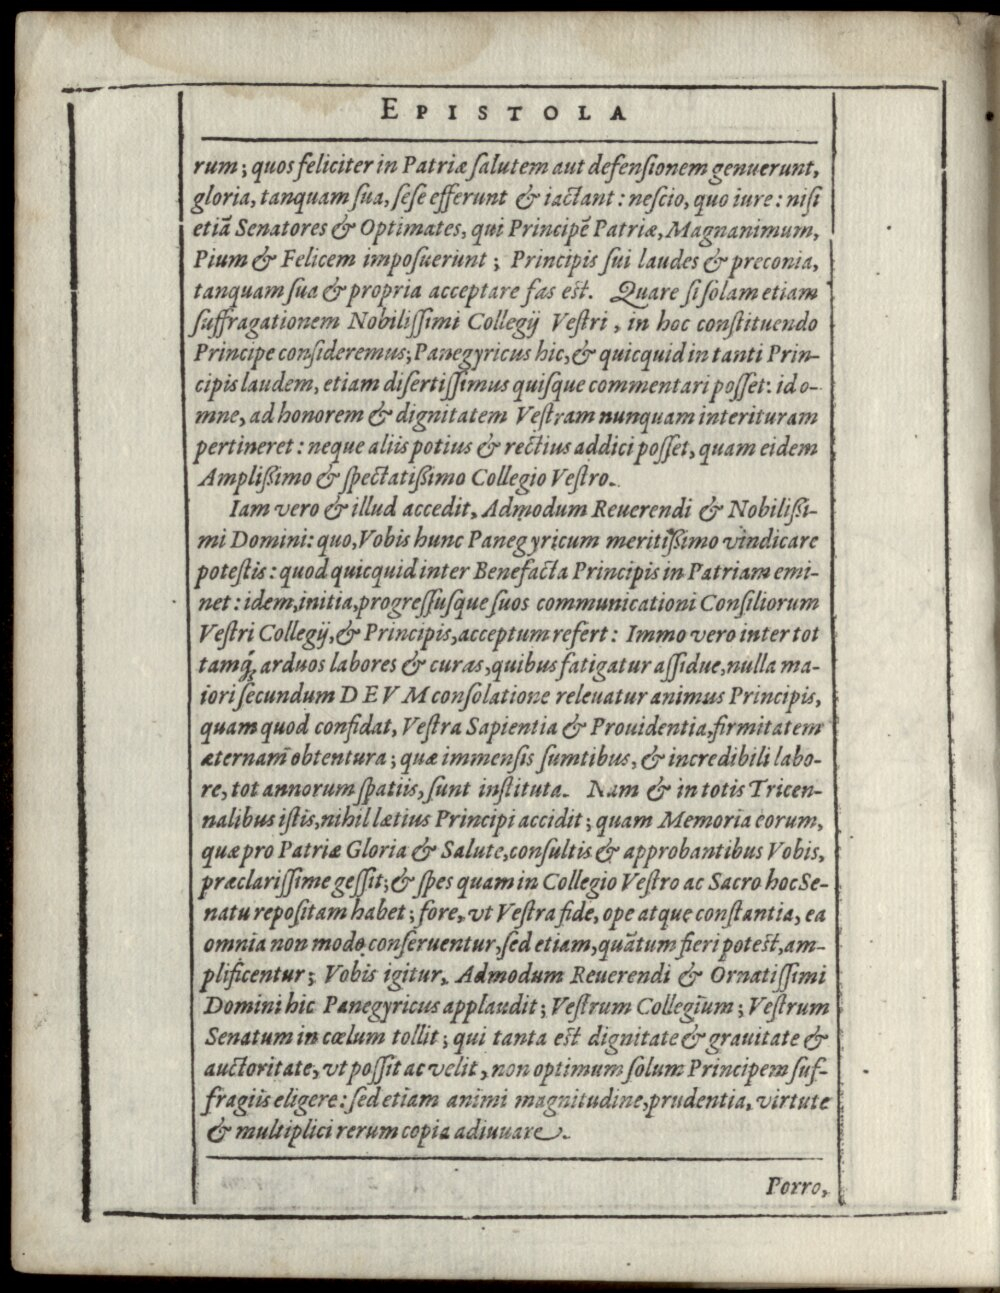 EPISTOLA
rum; quos feliciter in Patriæ ſalutem aut defenſionem genuerunt,
gloria, tanquam ſua, ſeſe efferunt & iactant: neſcio, quo iure: niſi
etiã Senatores & Optimates, qui Principẽ Patriæ, Magnanimum,
Pium & Felicem impoſuerunt; Principis ſui laudes & preconia,
tanquam ſua & propria acceptare fas eſt. Quare ſi ſolam etiam
ſuffragationem Nobiliſſimi Collegij Veſtri, in hoc conſtituendo
Principe conſideremus; Panegyricus hic, & quicquid in tanti Prin-
cipis laudem, etiam diſertiſſimus quiſque commentari poſſet: id o-
mne, ad honorem & dignitatem Veſtram nunquam interituram
pertineret: neque aliis potius & rectius addici poſſet, quam eidem
Ampliſſimo & ſpectatiſſimo Collegio Veſtro.
Iam vero & illud accedit, Admodum Reuerendi & Nobiliſſi-
mi Domini: quo, Vobis hunc Panegyricum meritiſſimo vindicare
poteſtis: quod quicquid inter Benefacta Principis in Patriam emi-
net: idem, initia, progreſſuſque ſuos communicationi Conſiliorum
Veſtri Collegij, & Principis, acceptum refert: Immo vero inter tot
tamq́; arduos labores & curas, quibus fatigatur aſſidue, nulla ma-
iori ſecundum DEVM conſolatione releuatur animus Principis,
quam quod confidat, Veſtra Sapientia & Prouidentia, firmitatem
æternam obtentura; quæ immenſis ſumtibus, & incredibili labo-
re, tot annorum ſpatiis, ſunt inſtituta. Nam & in totis Tricen-
nalibus iſtis, nihil lætius Principi accidit; quam Memoria eorum,
quæ pro Patriæ Gloria & Salute, conſultis & approbantibus Vobis,
præclariſſime geſſit; & ſpes quam in Collegio Veſtro ac Sacro hoc Se-
natu repoſitam habet; fore, vt Veſtra fide, ope atque conſtantia, ea
omnia non modo conſeruentur, ſed etiam, quãtum fieri poteſt, am-
plificentur; Vobis igitur, Admodum Reuerendi & Ornatiſſimi
Domini hic Panegyricus applaudit; Veſtrum Collegium; Veſtrum
Senatum in cœlum tollit; qui tanta eſt dignitate & grauitate &
auctoritate, vt poſſit ac velit, non optimum ſolum Principem ſuf-
fragiis eligere: ſed etiam animi magnitudine, prudentia, virtute
& multiplici rerum copia adiuuare.
Porro,